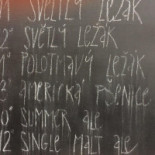 ° SVĚTLÝ LEŽÁK
2° SVĚTLÝ LEŽÁK
4° POLOTMAVÝ LEŽÁK
2° AMERICKÁ PŠENICE
0° SUMMER ALE
12° SINGLE MALT ALE